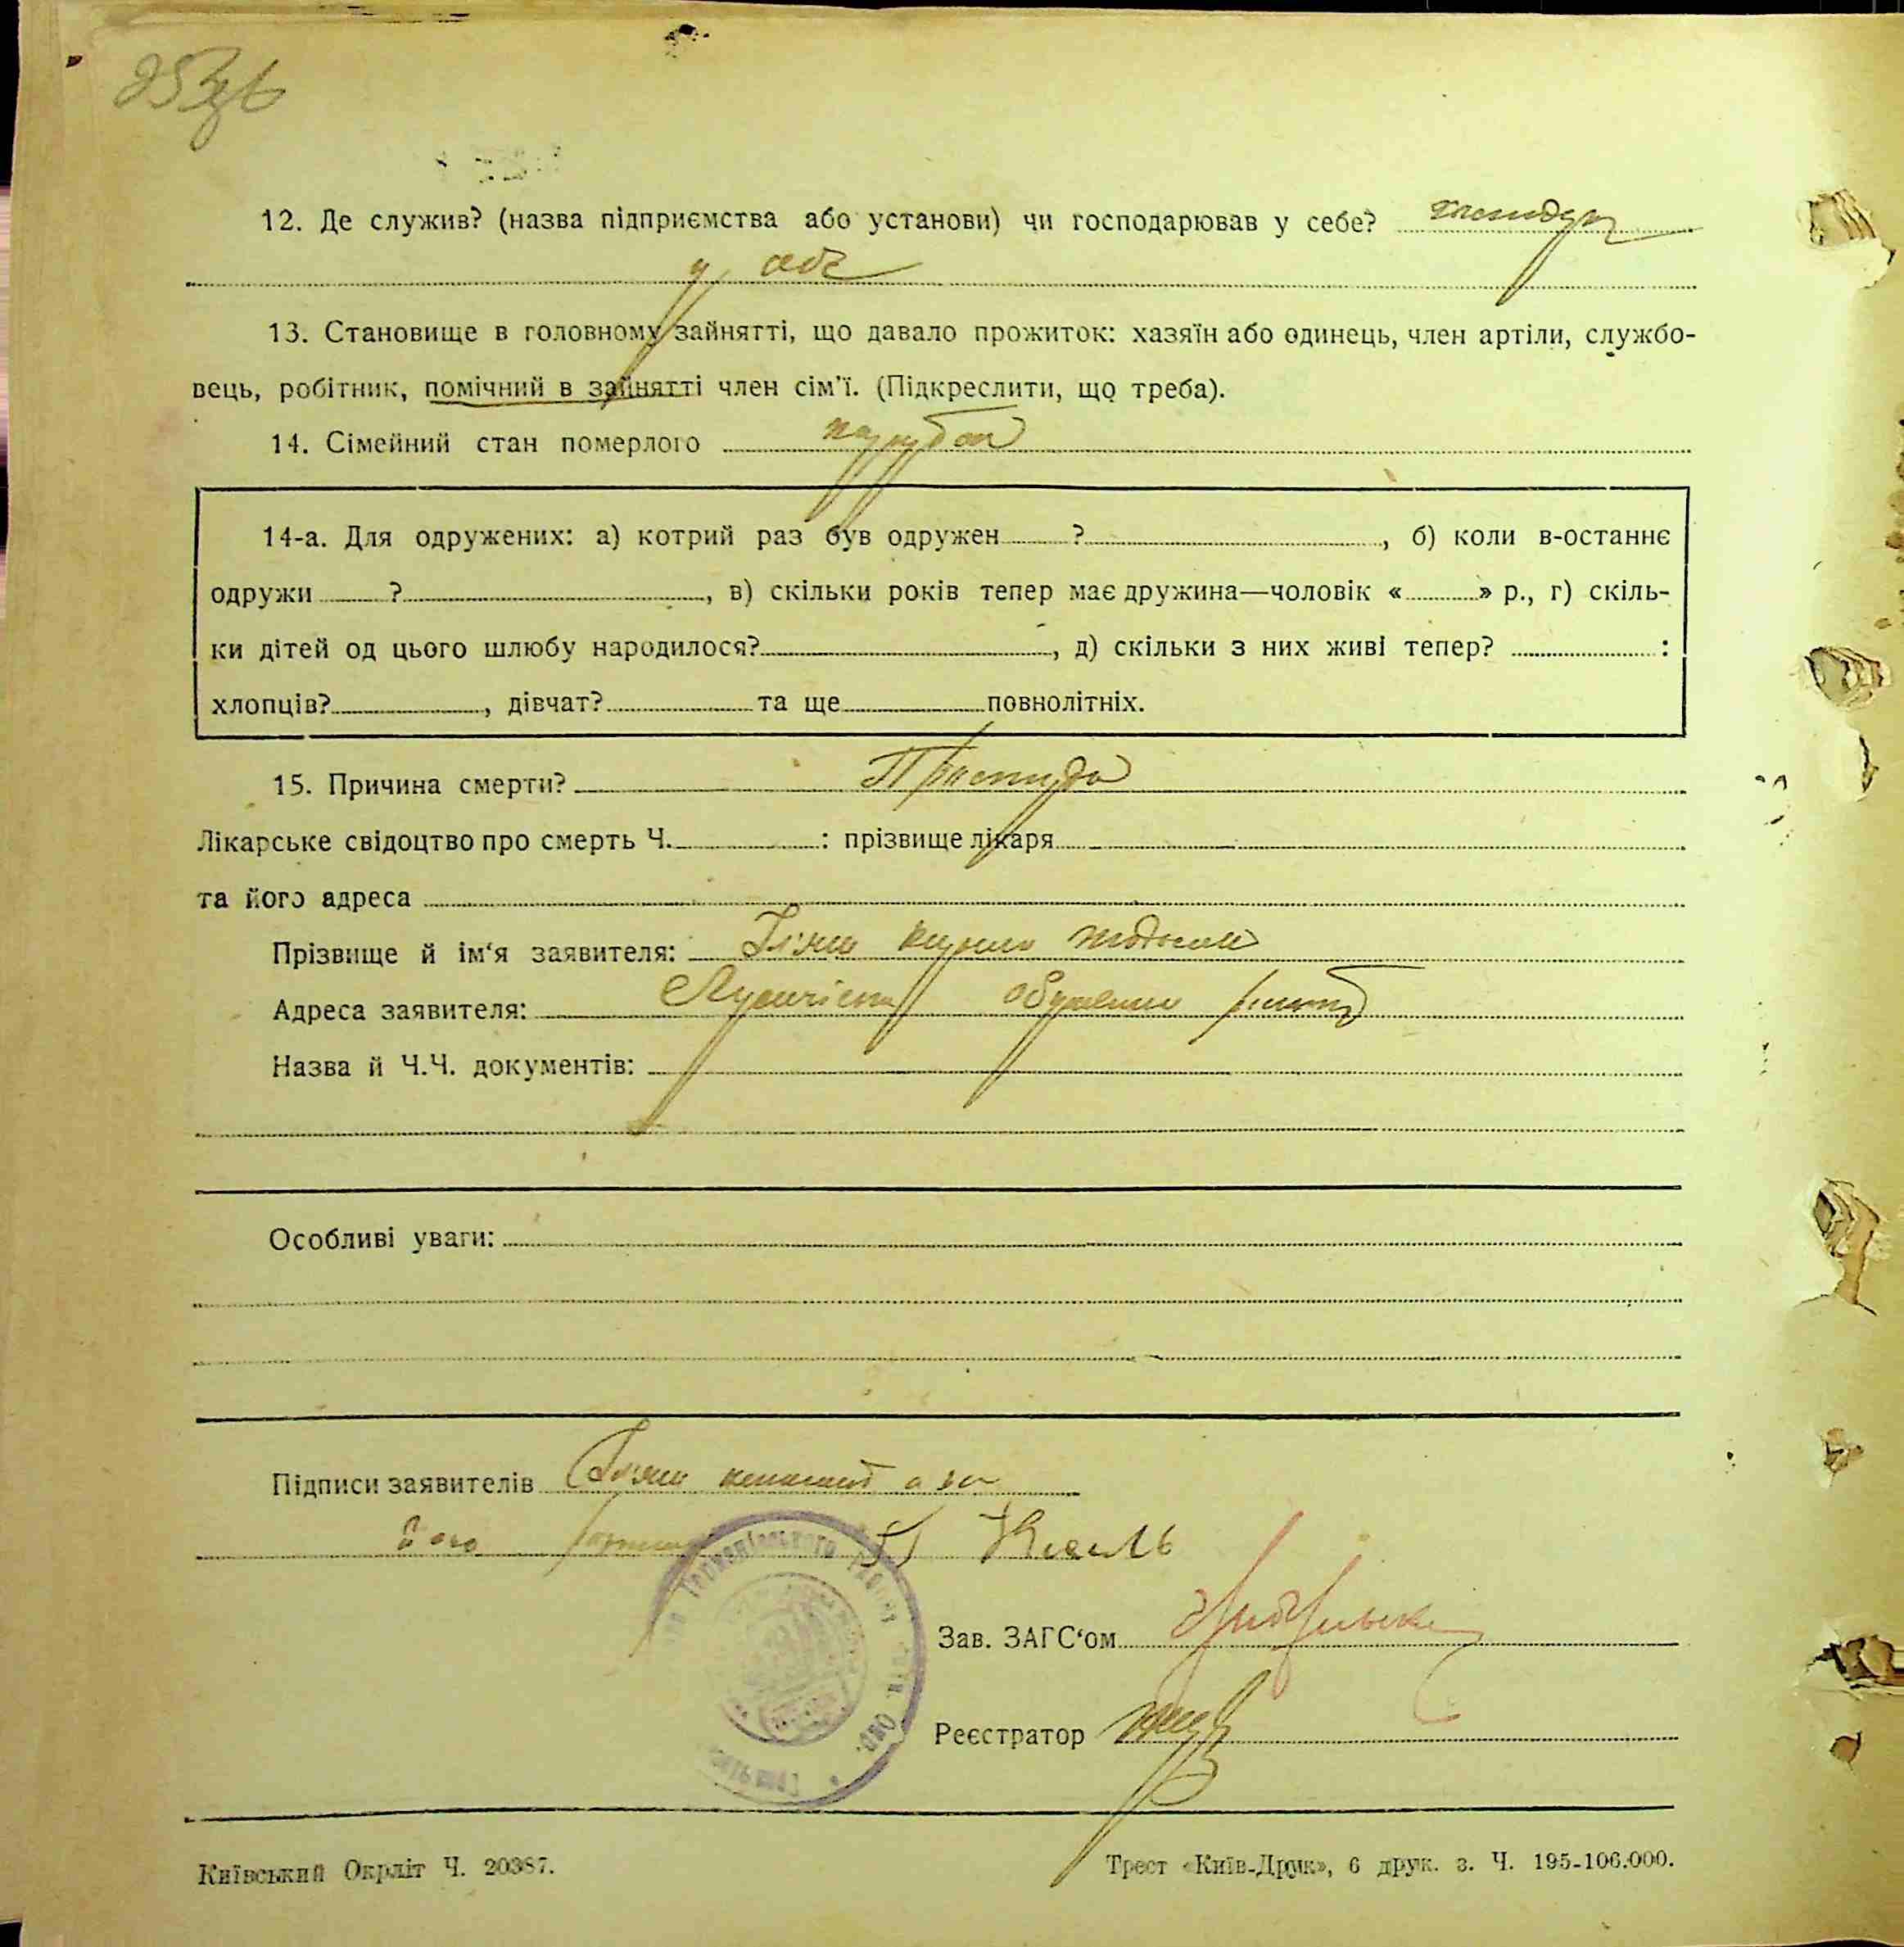 12. Де служив? (назва підприємства або установи) чи господарював у себе?
у себе
13. Становище в головному зайнятті, що давало прожиток: хазяїн або одинець, член артіли, службо-
вець, робітник, помічний в зайнятті член сім'ї. (Підкреслити, що треба).
14. Сімейний стан померлого парубок
14-а. Для одружених: а) котрий раз був одружен ? , б) коли в-останнє
одружи ? , в) скільки років тепер має дружина—чоловік « » р., г) скіль-
ки дітей од цього шлюбу народилося? , д) скільки з них живі тепер? :
хлопців? , дівчат? та ще повнолітніх.
15. Причина смерти? Простуда
Лікарське свідоцтво про смерть Ч. : прізвище лікаря
та його адреса
Прізвище й ім'я заявителя:
Адреса заявителя:
Назва й Ч.Ч. документів:
Особливі уваги:
Підписи заявителів
його
Зав. ЗАГС'ом
Реєстратор
Київський Окрліт Ч. 20387.
Трест «Київ-Друк», 6 друк. з. Ч. 195-106.000.